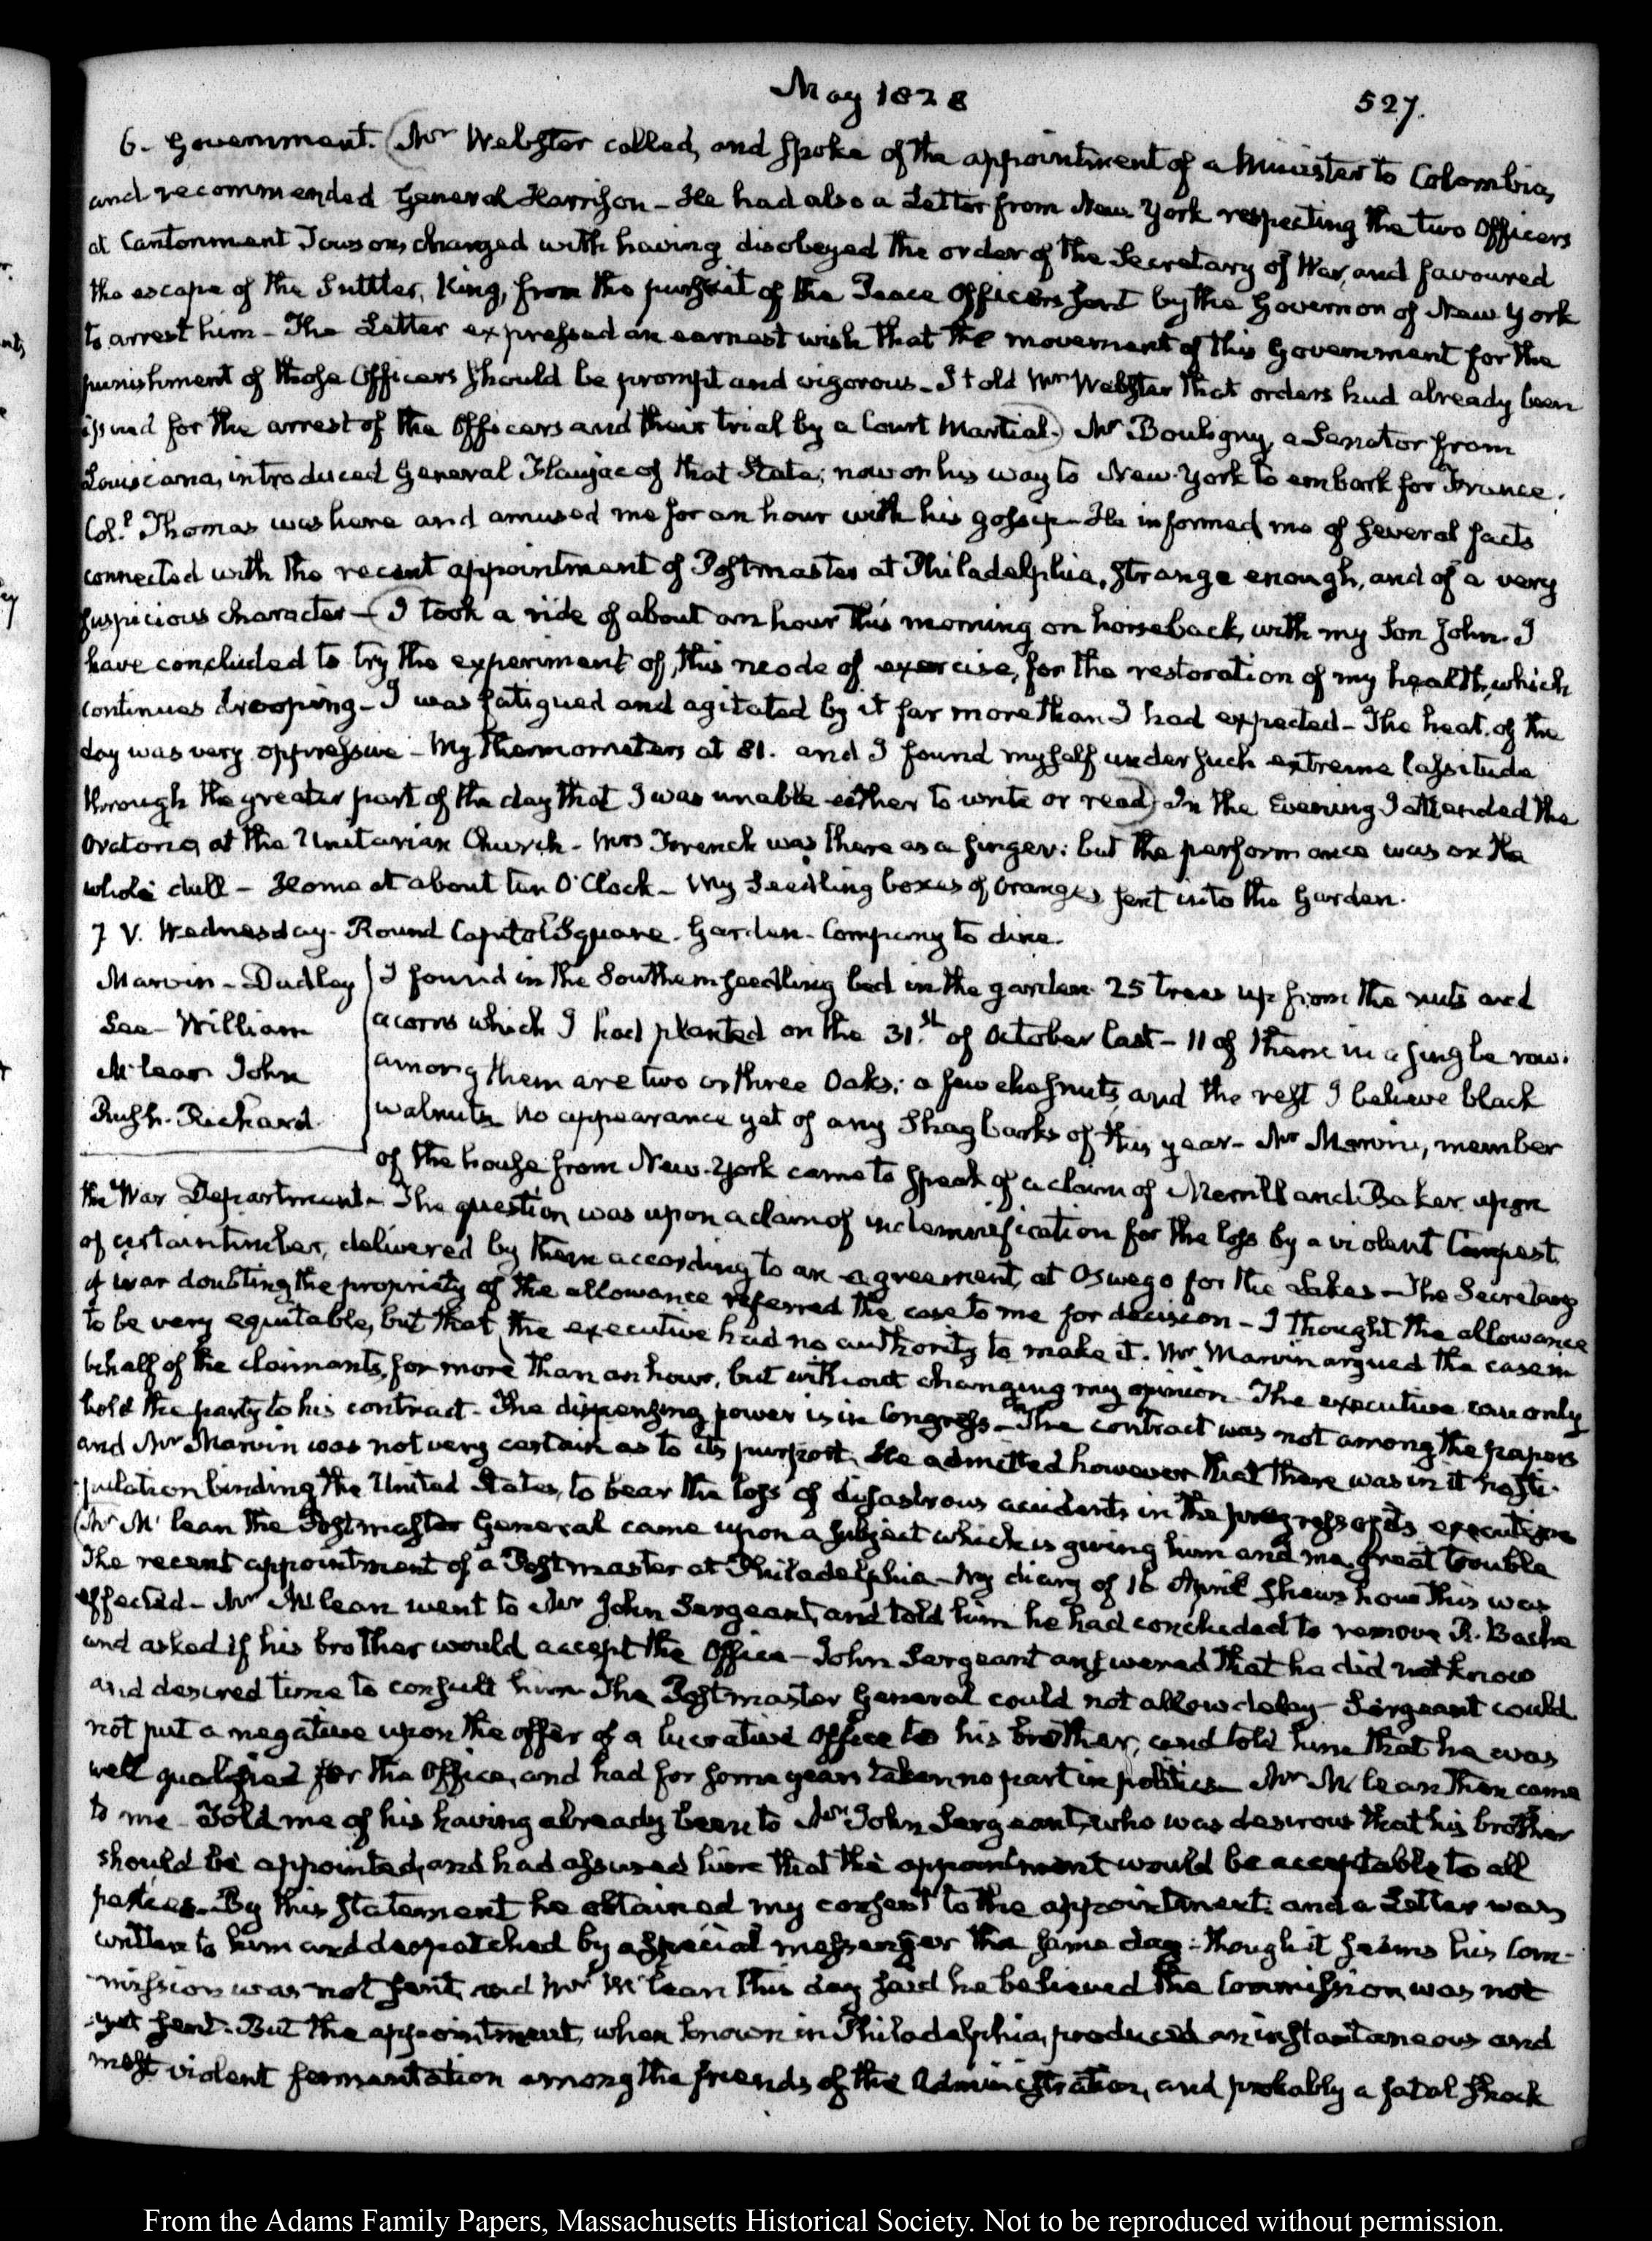 May 1828
527.
6. Government. (Mr Webster called, and spoke of the appointment of a Minister to Colombia,
and recommended General Harrison – He had also a Letter from New York respecting the two Officers
at Cantonment Towson, charged with having disobeyed the order of the Secretary of War, and favoured
the escape of the Suttler, King, from the pursuit of the Peace Officers sent by the Governor of New York
to arrest him – The Letter expressed an earnest wish that the movement of this Government for the
punishment of those Officers should be prompt and vigorous – I told Mr Webster that orders had already been
issued for the arrest of the Officers and their trial by a Court Martial.) Mr Bouligny, a Senator from
Louisiana, introduced General Flaujac of that State; now on his way to New-York to embark for France.
Coll. Thomas was here and amused me for an hour with his gossip – He informed me of several facts
connected with the recent appointment of Postmaster at Philadelphia, strange enough, and of a very
suspicious character – (I took a ride of about an hour this morning on horseback, with my Son John. I
have concluded to try the experiment of this mode of exercise, for the restoration of my health, which
continues drooping – I was fatigued and agitated by it far more than I had expected – The heat of the
day was very oppressive – My thermometer at 81. and I found myself under such extreme lassitude
through the greater part of the day that I was unable either to write or read) In the Evening I attended the
Oratorio, at the Unitarian Church – Mrs French was there as a singer: but the performance was on the
whole dull – Home at about ten O'Clock – My Seedling boxes of Oranges sent into the Garden.
7 V. Wednesday. Round Capitol Square. Garden. Company to dine.
Marvin – Dudley
Lee – William
McLean John
Rush. Richard
I found in the Southern seedling bed in the garden 25 trees up from the nuts and
acorns which I had planted on the 31.st of October last – 11 of them in a single row.
among them are two or three Oaks; a few chesnuts, and the rest I believe black
walnuts. No appearance yet of any Shagbarks of this year – Mr Marvin, member
of the house from New-York came to speak of a claim of Merrill and Baker upon
the War Department – The question was upon a claim of indemnification for the loss by a violent tempest,
of certain timber, delivered by them according to an agreement, at Oswego for the Lakes – The Secretary
of War doubting the propriety of the allowance referred the case to me for decision – I thought the allowance
to be very equitable, but that the executive had no authority to make it. Mr Marvin argued the case in
behalf of the claimants, for more than an hour, but without changing my opinion – The executive can only
hold the party to his contract – The dispensing power is in Congress – The contract was not among the papers
and Mr Marvin was not very certain as to its purport. He admitted however that there was in it no sti-
pulation binding the United States, to bear the loss of disastrous accidents in the progress of its execution
(Mr McLean the Postmaster General came upon a subject which is giving him and me great trouble
The recent appointment of a Postmaster at Philadelphia – My diary of 16 April shews how this was
effected – Mr McLean went to Mr John Sergeant, and told him he had concluded to remove R. Bache
and asked if his brother would accept the Office – John Sergeant answered that he did not know
and desired time to consult him – The Postmaster General could not allow delay – Sergeant could
not put a negative upon the offer of a lucrative Office to his brother, and told him that he was
well qualified for the Office, and had for some years taken no part in politics – Mr McLean then came
to me – Told me of his having already been to Mr John Sergeant, who was desirous that his brother
should be appointed, and had assured him that the appointment would be acceptable to all
parties – By this statement he obtained my consent to the appointment: and a Letter was
written to him and despatched by a special messenger the same day: though it seems his Com-
mission was not sent, and Mr McLean this day said he believed the Commission was not
yet sent. But the appointment, when known in Philadelphia, produced an instantaneous and
most violent fermentation among the friends of the Administration, and probably a fatal shock
From the Adams Family Papers, Massachusetts Historical Society. Not to be reproduced without permission.